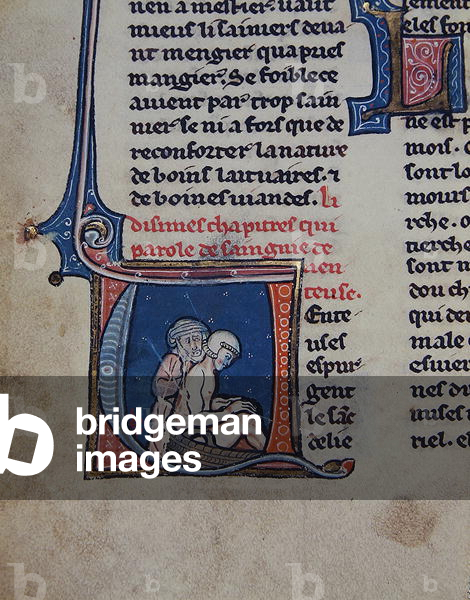 nen a mestier vaut
mieus li sainiers deua
nt mengier qua pries
mangier. Se foiblece
auient par trop sain
nier se ni a fors que de
reconforter la nature
de boins laituaires. ⁊
de boines uiandes. li
disimes chapitres qui
parole de sainguie de
uen
teuse.
Ente
uses
espur
gent
le sāc
delie
eles for
L
ne est p
mois. C
sont lo
mours
rche. o
tierche
sont n
dou ch
qui de
male
esuier
nes du
nuses
riel. el
bridgeman
images
b